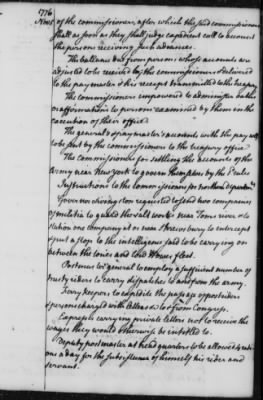 1776
Nov 5
of the commissioners, after which the said commissioners
shall as soon as they shall judge expedient call to account
the persons receiving such advances.
The ballance due from persons whose accounts are
adjusted to be received by the commissioners & delivered
to the paymaster & his receipt transmitted to the treasury.
The commissioners empowered to administer oaths
or affirmations to persons examined by them in the
execution of their office.
The general & pay masters accounts with the pay rolls
to be sent by the commissioners to the treasury office.
The commissioners for settling the accounts of the
Army near New york to govern themselves by the rules
Instructions to the Commissioners for northern department
Governor Livingston requested to send two companies
of militia to guard the salt works near Toms river &
station one company at or near Shrewsbury to intercept
& put a stop to the intelligence said to be carrying on
between the tories and Lord Howe's fleet.
Postmaster general to employ a sufficient number of
trusty riders to carry dispatches to and from the army.
Ferry keepers to expedite the passage of post riders
& persons charged with letters &c to or from Congress.
Expresses carrying private letters not to receive the
wages they would otherwise be intitled to.
Deputy postmaster at head quarters to be allowed
ations a day for the subsistence of himself his rider and
servant.